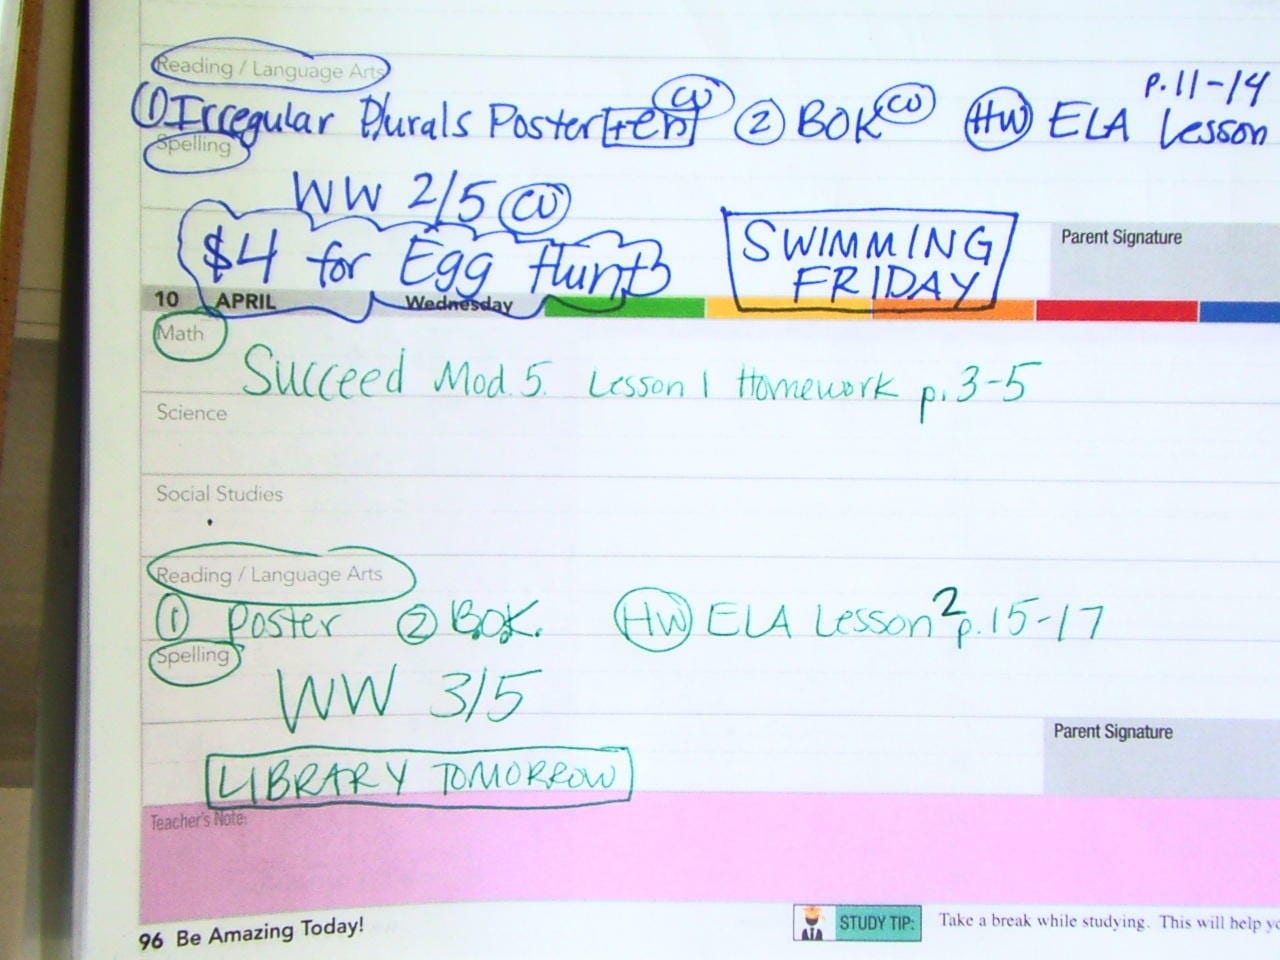 Reading / Language Arts
p.11-14
① Irregular Plurals Poster +en CW ② BOK CW HW ELA Lesson
Spelling
WW 2/5 CW
$4 for Egg Hunt
SWIMMING
FRIDAY
Parent Signature
10 APRIL Wednesday
Math
Succeed Mod. 5. Lesson 1 Homework p. 3-5
Science
Social Studies
Reading / Language Arts
① Poster ② B.O.K. HW ELA Lesson 2 p. 15-17
Spelling
WW 3/5
Parent Signature
LIBRARY TOMORROW
Teacher's Note:
96 Be Amazing Today!
STUDY TIP: Take a break while studying. This will help